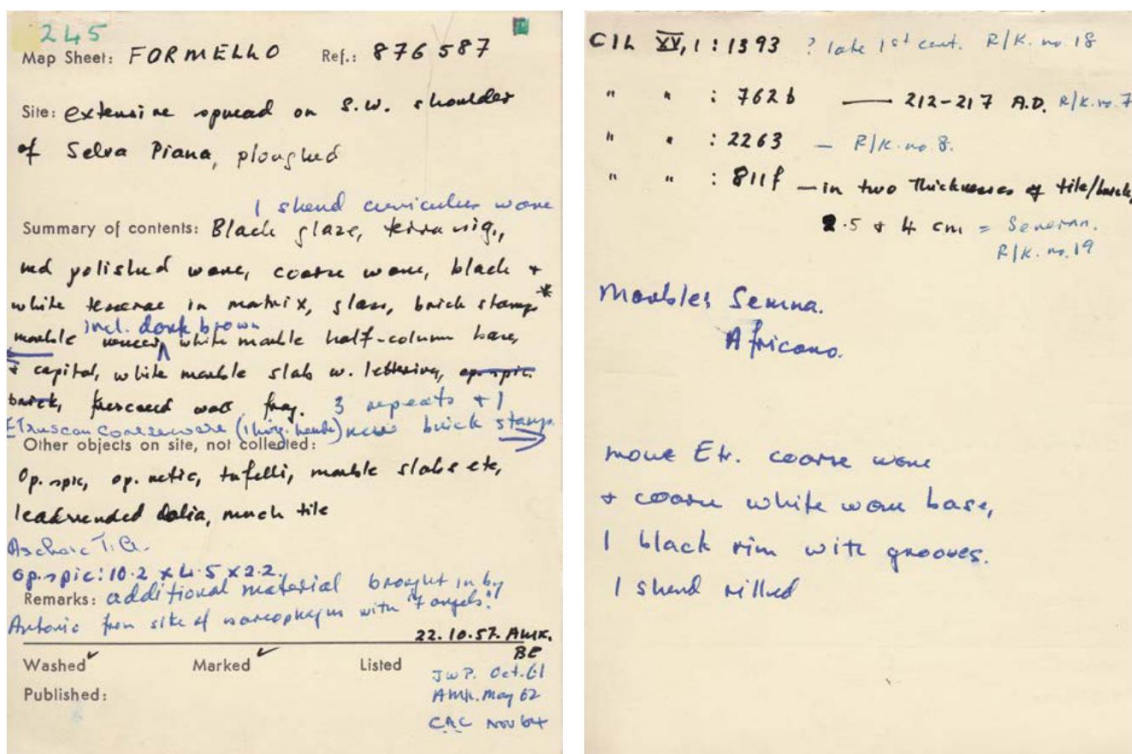 245
Map Sheet: FORMELLO Ref.: 876587
Site: extensive spread on S.W. shoulder
of Selva Piana, ploughed
1 sherd curvicular ware
Summary of contents: Black glaze, terra sig.,
red polished ware, coarse ware, black +
white tesserae in matrix, glass, brick stamps*
marble veneer, incl. dark brown white marble half-column base,
+ capital, white marble slab w. lettering, op. spic.
brick, frescoed wall frag. 3 repeats + 1
Etruscan coarseware (1 horiz. handle) new brick stamp
Other objects on site, not collected:
Op. spic, op. retic, tufelli, marble slabs etc,
lead mended dolia, much tile
Archaic T.G.
op. spic: 10.2 x 4.5 x 2.2.
Remarks: additional material brought in by
Antonio from site of sarcophagus with "7 angels".
22.10.57. AMK.
BE
Washed ✓ Marked ✓ Listed
JWP. Oct. 61
Published: AMK. May 62
CAC Nov 64
CIL XV,1 : 1393 ? late 1st cent. R/K. no. 18
" " : 762b — 212-217 A.D. R/K. no. 7
" " : 2263 — R/K. no 8.
" " : 811f — in two thicknesses of tile/brick,
2.5 + 4 cm = Severan.
R/K. no. 19
Marbles Semna.
Africano.
more Etr. coarse ware
+ coarse white ware base,
1 black rim with grooves.
1 sherd rilled